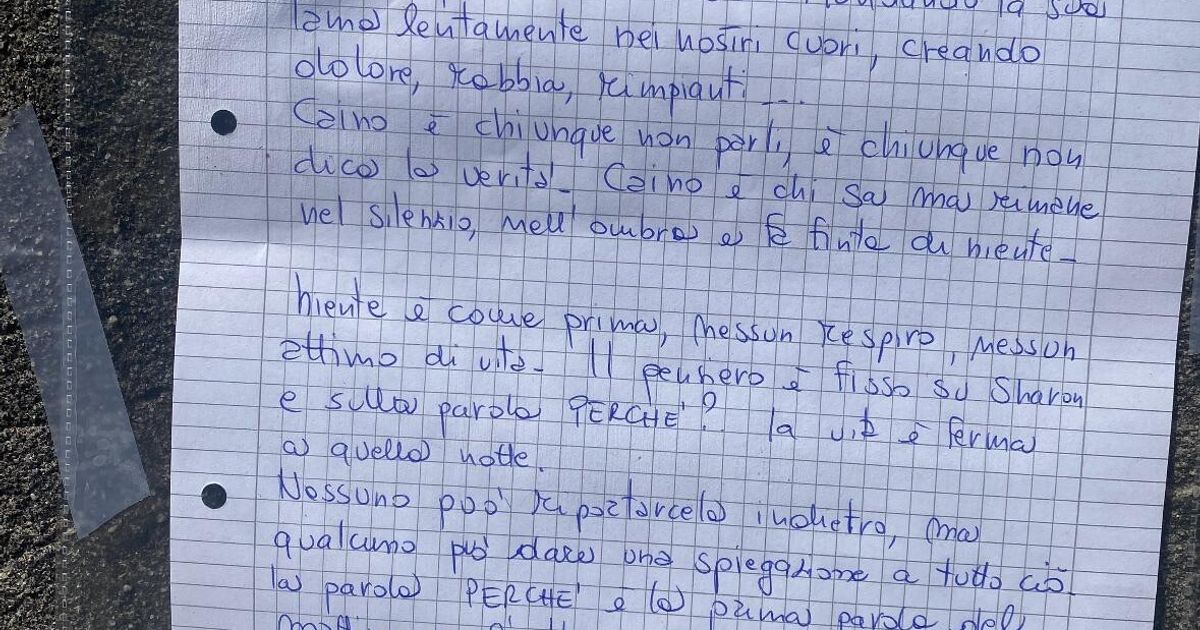 la sua
lama lentamente nei nostri cuori, creando
dolore, rabbia, rimpianti ...
Caino è chiunque non parli, è chiunque non
dica la verità_ Caino è chi sa ma rimane
nel silenzio, nell'ombra e fa finta di niente_
niente è come prima, nessun respiro, nessun
attimo di vita_ Il pensiero è fisso su Sharon
e sulla parola PERCHE'? la vita è ferma
a quella notte.
Nessuno può riportarcela indietro, ma
qualcuno può dare una spiegazione a tutto ciò.
la parola PERCHE' è la prima parola del